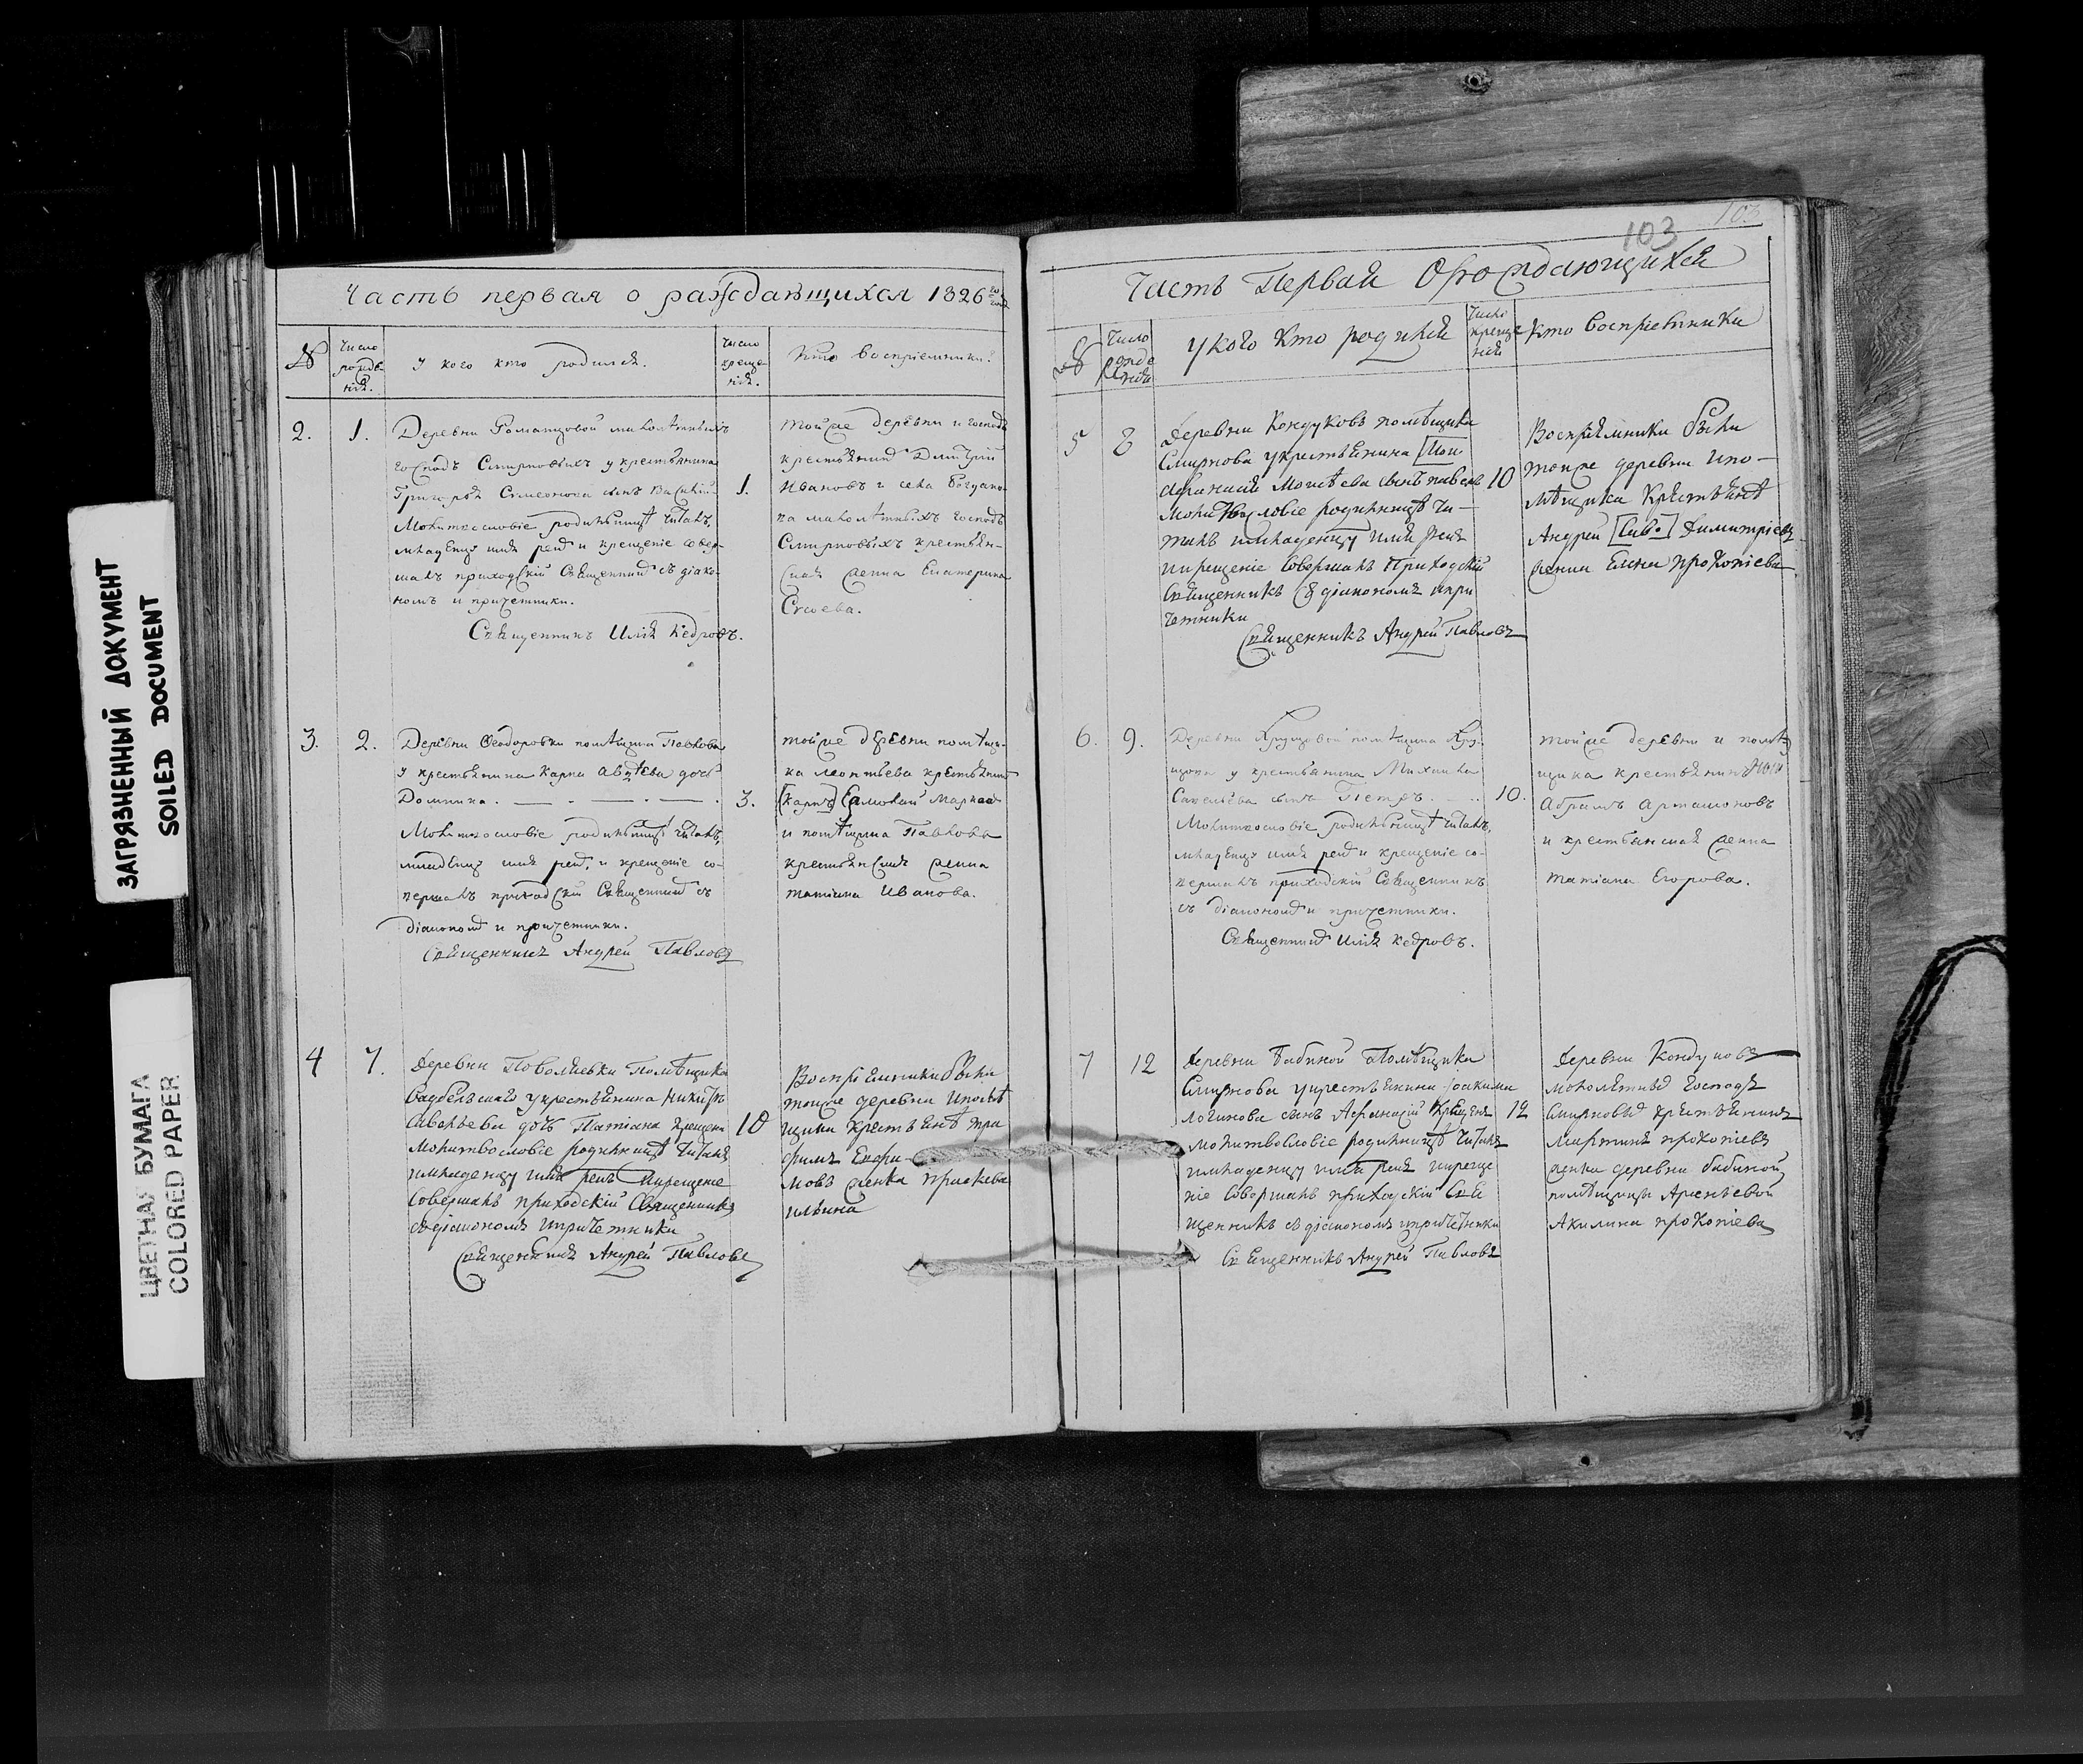 ЗАГРЯЗНЕННЫЙ ДОКУМЕНТ
SOILED DOCUMENT
ЦВЕТНАЯ БУМАГА
COLORED PAPER
Часть первая о раждающихся 1826
№
Число рожде-нія.
у кого кто родился.
Число креще-нія.
Кто воспріемники?
2. 1.
Деревни Романцовой малолѣтныхъ
господъ Смирновыхъ у крестьянина
Григорья Симеонова сынъ Василій.
Молитвословіе родильницѣ читалъ,
младенцу имя рекъ и крещеніе совер-
шалъ приходскій Священникъ съ діако-
номъ и причетники.
Священникъ Илія Кедровъ.
1.
тойже деревни и господъ
крестьянинъ Дмитрій
Ивановъ и села Богдано-
ва малолѣтныхъ господъ
Смирновыхъ крестьян-
ская женка Екатерина
3. 2.
Деревни Ѳеодоровки помѣщика Павлова
у крестьянина Карпа дочь
Домника.
Молитвословіе родильницѣ читалъ,
младенцу имя рекъ, и крещеніе со-
вершалъ приходскій Священникъ съ
діакономъ и причетники.
Священникъ Андрей Павловъ
3.
тойже деревни помѣщи-
ка Леонтьева крестьянинъ
[Карпъ] Самойла Марковъ
и помѣщика Павлова
крестьянская женка
татіана Иванова.
4 7.
Деревни Поволяевки Помѣщика
у крестьянина Никиты
Савельева дочь Татіана крещена
молитвословіе родильницѣ читалъ
имладенцу имя рекъ икрещеніе
Совершалъ приходскій Священникъ
съдіакономъ ипричетники
Священникъ Андрей Павловъ
10
Воспріемники были
тойже деревни ипомѣ
щика крестьянѣ тро
фимъ Ефри-
мовъ женка праскева
ильина
103
103
Часть Первая О рождающихся
№
Число рожде нія
у кого кто родился
Число креще нія
Кто воспріемники
5 8
Деревни Кондуковъ помѣщика
Смирнова укрестьянина
Моисѣева сынъ павелъ
Молитвословіе родильницѣ чи-
талъ имладенцу имя рекъ
икрещеніе Совершалъ Приходскій
Священникъ Съ діакономъ ипри
четники
Священникъ Андрей Павловъ
10
Воспріемники были
тойже деревни ипо-
мѣщика Крестьянѣ
Андрей Димитріевъ
женка Елена прокопіева
6. 9.
Деревни помѣщика
у крестьянина Михаила
Савельева сынъ Петръ.
Молитвословіе родильницѣ читалъ,
младенцу имя рекъ и крещеніе со-
вершалъ приходскій Священникъ
съ діакономъ и причетники.
Священникъ Илія Кедровъ.
10.
тойже деревни и помѣ
щика крестьянинъ
Абрамъ Артамоновъ
и крестьянская женка
татіана Егорова.
7 12
Деревни Бабиной Помѣщика
Смирнова укрестьянина Іоакима
логинова сынъ Афанасій Крещенъ
молитвословіе родильницѣ читалъ
имладенцу имя рекъ икреще
ніе Совершалъ приходскій Свя
щенникъ съдіакономъ ипричетники
Священникъ Андрей Павловъ
12
Деревни Кондуковъ
малолѣтныхъ Господъ
Смирновыхъ крестьянинъ
Мартинъ прокопіевъ
женка деревни бабиной
помѣщицы Арсеньевой
Акилина прокопіева